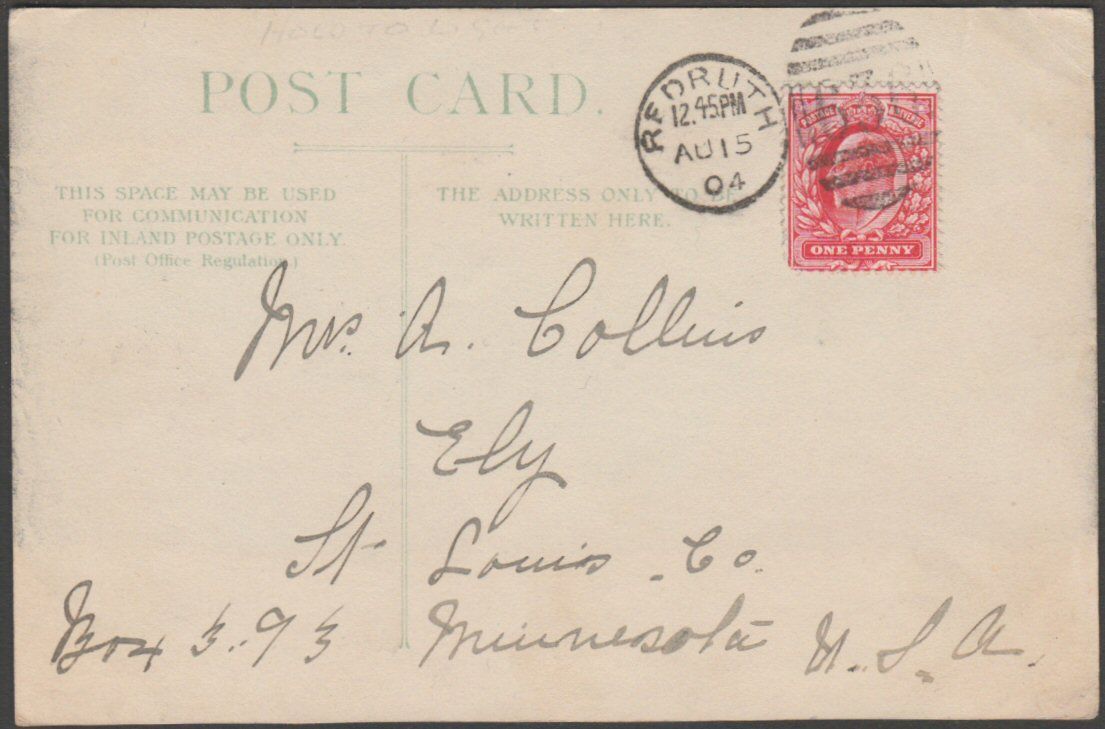 HOLD TO LIGHT
POST CARD.
REDRUTH
12.45PM
AU 15
04
POSTAGE & REVENUE
ONE PENNY
THIS SPACE MAY BE USED
FOR COMMUNICATION
FOR INLAND POSTAGE ONLY.
(Post Office Regulation.)
THE ADDRESS ONLY TO BE
WRITTEN HERE.
Mrs. A. Collins
Ely
St Louis Co.
Box 393 Minnesota U. S. A.